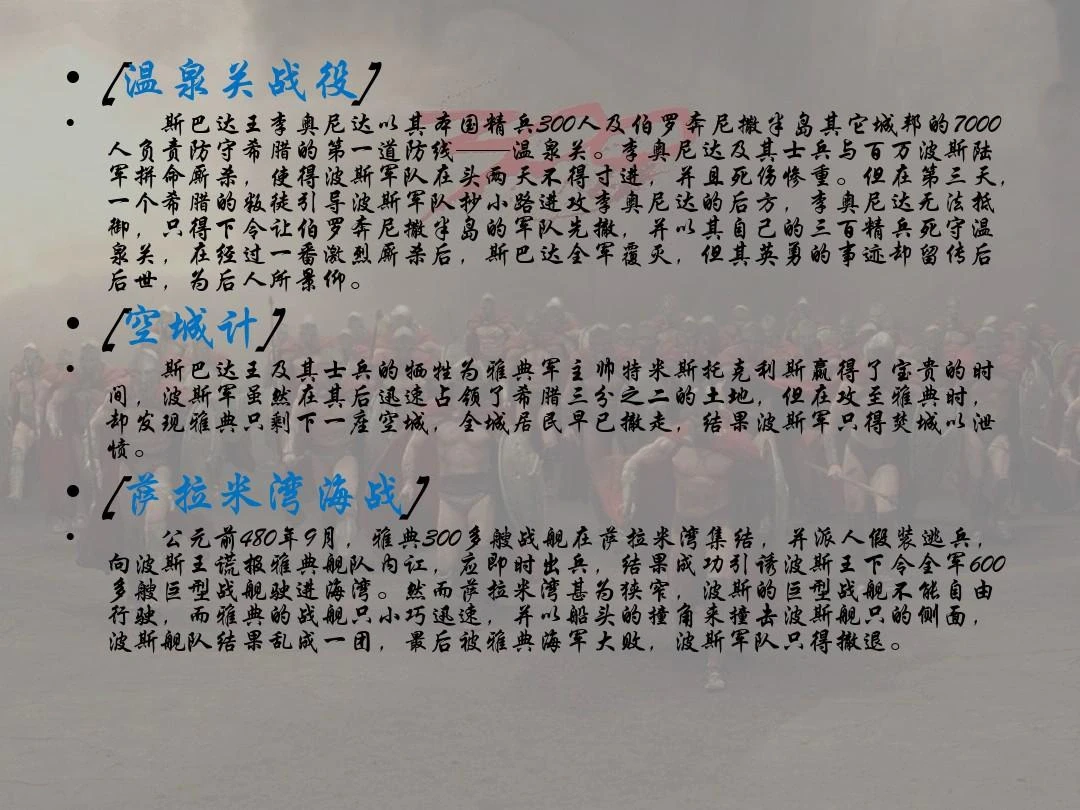 • [温泉关战役]
• 斯巴达王李奥尼达以其本国精兵300人及伯罗奔尼撒半岛其它城邦的7000
人负责防守希腊的第一道防线——温泉关。李奥尼达及其士兵与百万波斯陆
军拼命厮杀，使得波斯军队在头两天不得寸进，并且死伤惨重。但在第三天，
一个希腊的叛徒引导波斯军队抄小路进攻李奥尼达的后方，李奥尼达无法抵
御，只得下令让伯罗奔尼撒半岛的军队先撤，并以其自己的三百精兵死守温
泉关，在经过一番激烈厮杀后，斯巴达全军覆灭，但其英勇的事迹却留传后
后世，为后人所景仰。
• [空城计]
• 斯巴达王及其士兵的牺牲为雅典军主帅特米斯托克利斯赢得了宝贵的时
间，波斯军虽然在其后迅速占领了希腊三分之二的土地，但在攻至雅典时，
却发现雅典只剩下一座空城，全城居民早已撤走，结果波斯军只得焚城以泄
愤。
• [萨拉米湾海战]
• 公元前480年9月，雅典300多艘战舰在萨拉米湾集结，并派人假装逃兵，
向波斯王谎报雅典舰队内讧，应即时出兵，结果成功引诱波斯王下令全军600
多艘巨型战舰驶进海湾。然而萨拉米湾甚为狭窄，波斯的巨型战舰不能自由
行驶，而雅典的战舰只小巧迅速，并以船头的撞角来撞击波斯舰只的侧面，
波斯舰队结果乱成一团，最后被雅典海军大败，波斯军队只得撤退。